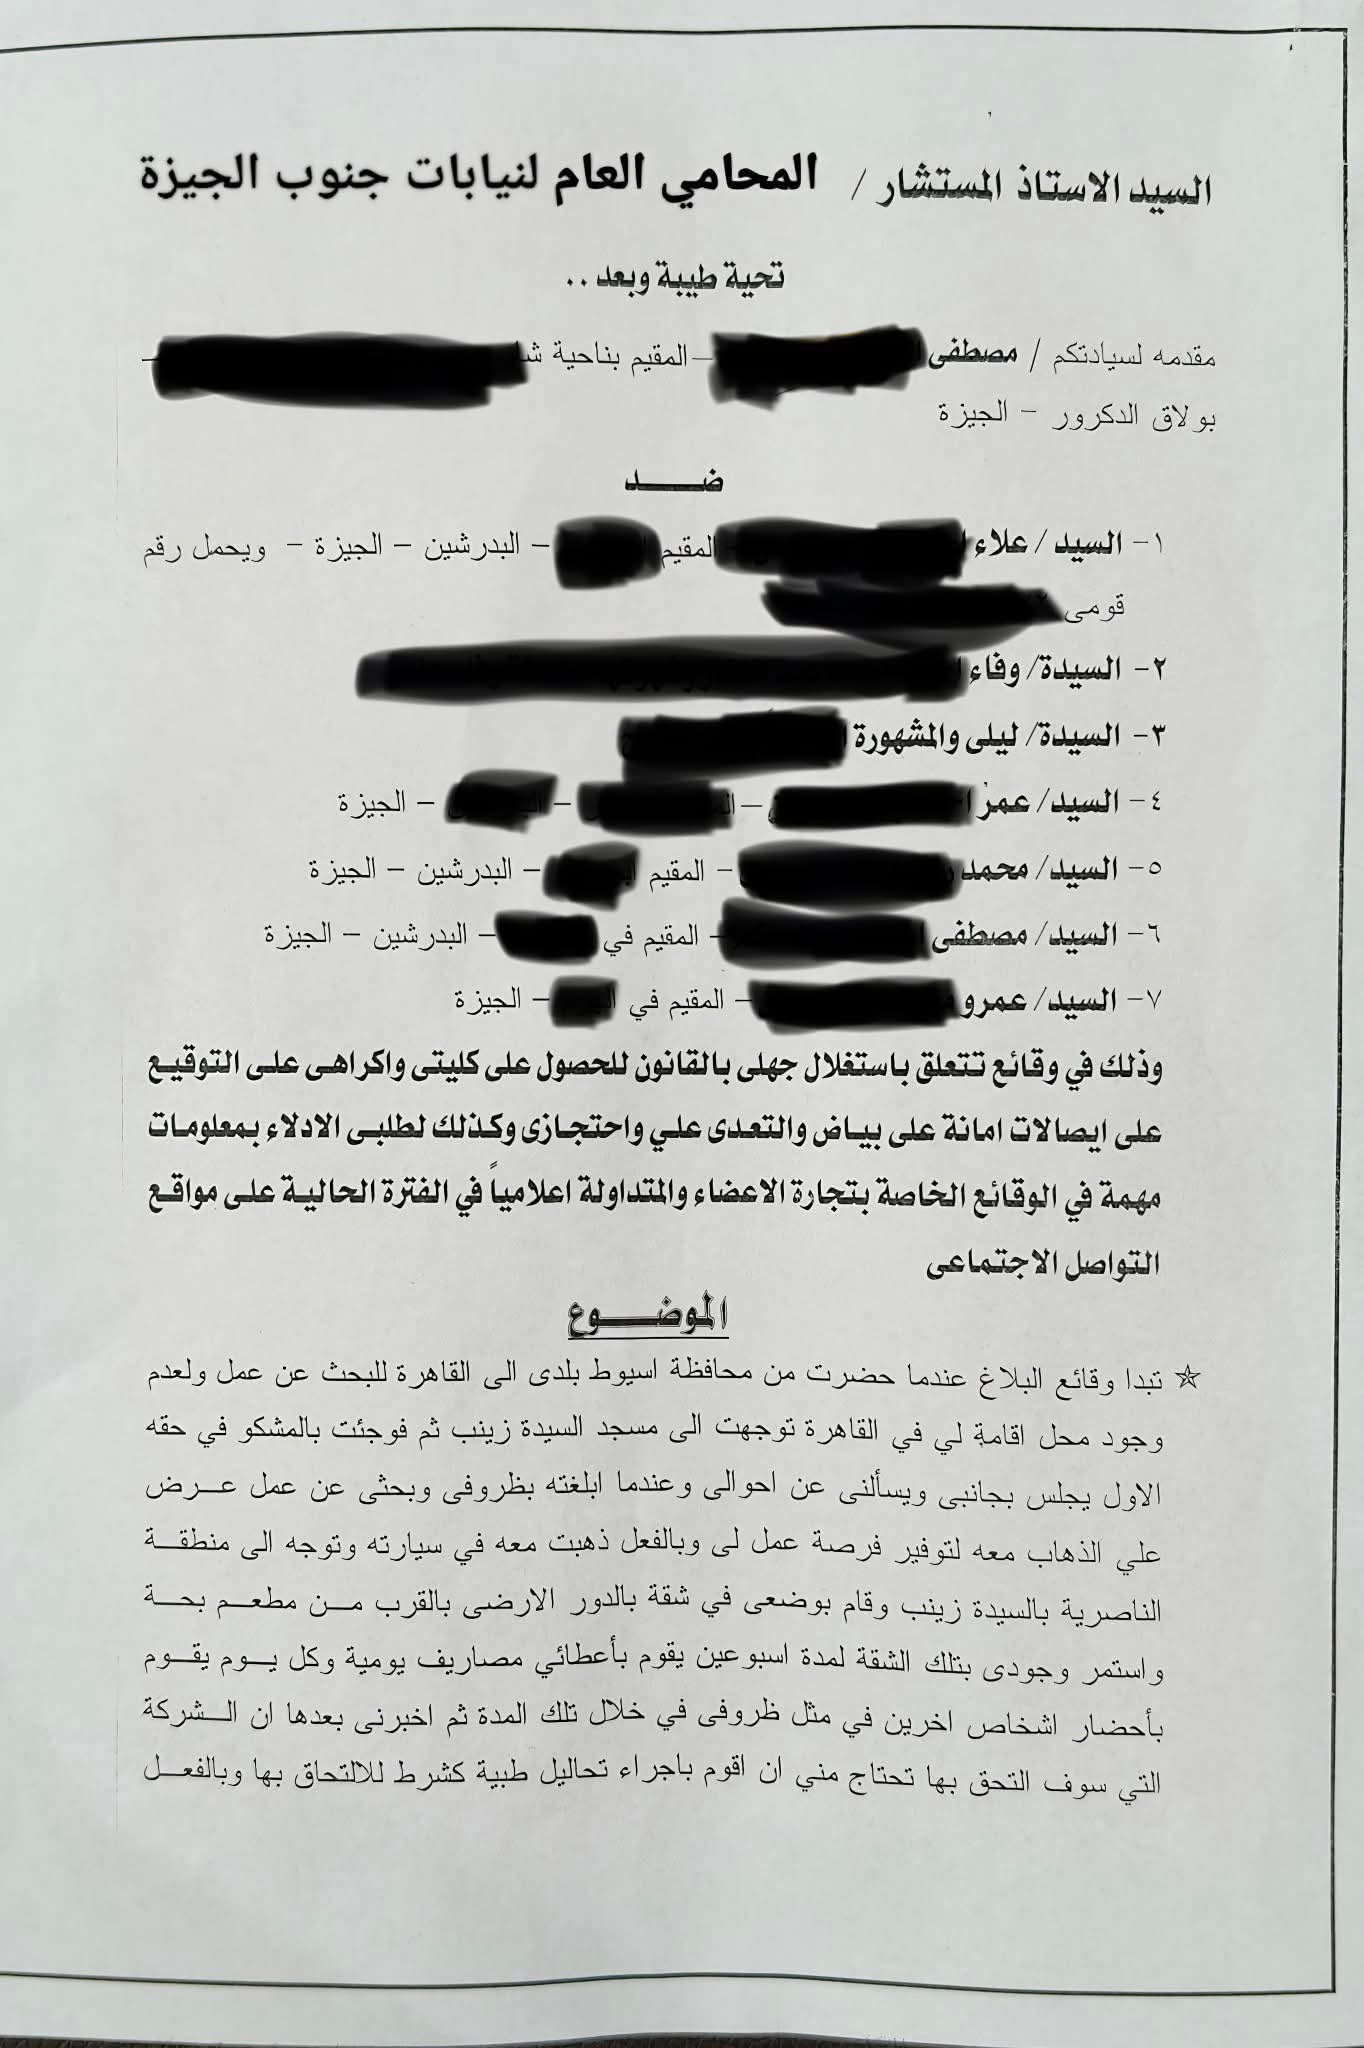 السيد الاستاذ المستشار / المحامي العام لنيابات جنوب الجيزة
تحية طيبة وبعد ..
مقدمه لسيادتكم / مصطفى – المقيم بناحية –
بولاق الدكرور – الجيزة
ضــــد
١- السيد / علاء المقيم – البدرشين – الجيزة – ويحمل رقم
قومى
٢- السيدة/ وفاء
٣- السيدة/ ليلى والمشهورة
٤- السيد/ عمر – – – الجيزة
٥- السيد/ محمد – المقيم – البدرشين – الجيزة
٦- السيد/ مصطفى – المقيم في – البدرشين – الجيزة
٧- السيد/ عمرو – المقيم في – الجيزة
وذلك في وقائع تتعلق باستغلال جهلى بالقانون للحصول على كليتى واكراهى على التوقيع
على ايصالات امانة على بياض والتعدى علي واحتجازى وكذلك لطلبى الادلاء بمعلومات
مهمة في الوقائع الخاصة بتجارة الاعضاء والمتداولة اعلامياً في الفترة الحالية على مواقع
التواصل الاجتماعى
الموضــــوع
☆ تبدا وقائع البلاغ عندما حضرت من محافظة اسيوط بلدى الى القاهرة للبحث عن عمل ولعدم
وجود محل اقامة لي في القاهرة توجهت الى مسجد السيدة زينب ثم فوجئت بالمشكو في حقه
الاول يجلس بجانبى ويسألنى عن احوالى وعندما ابلغته بظروفى وبحثى عن عمل عـــرض
علي الذهاب معه لتوفير فرصة عمل لى وبالفعل ذهبت معه في سيارته وتوجه الى منطقـــة
الناصرية بالسيدة زينب وقام بوضعى في شقة بالدور الارضى بالقرب مـــن مطعـــم بحـــة
واستمر وجودى بتلك الشقة لمدة اسبوعين يقوم بأعطائي مصاريف يومية وكل يـــوم يقـــوم
بأحضار اشخاص اخرين في مثل ظروفى في خلال تلك المدة ثم اخبرنى بعدها ان الـــشركة
التي سوف التحق بها تحتاج مني ان اقوم باجراء تحاليل طبية كشرط للالتحاق بها وبالفعـــل